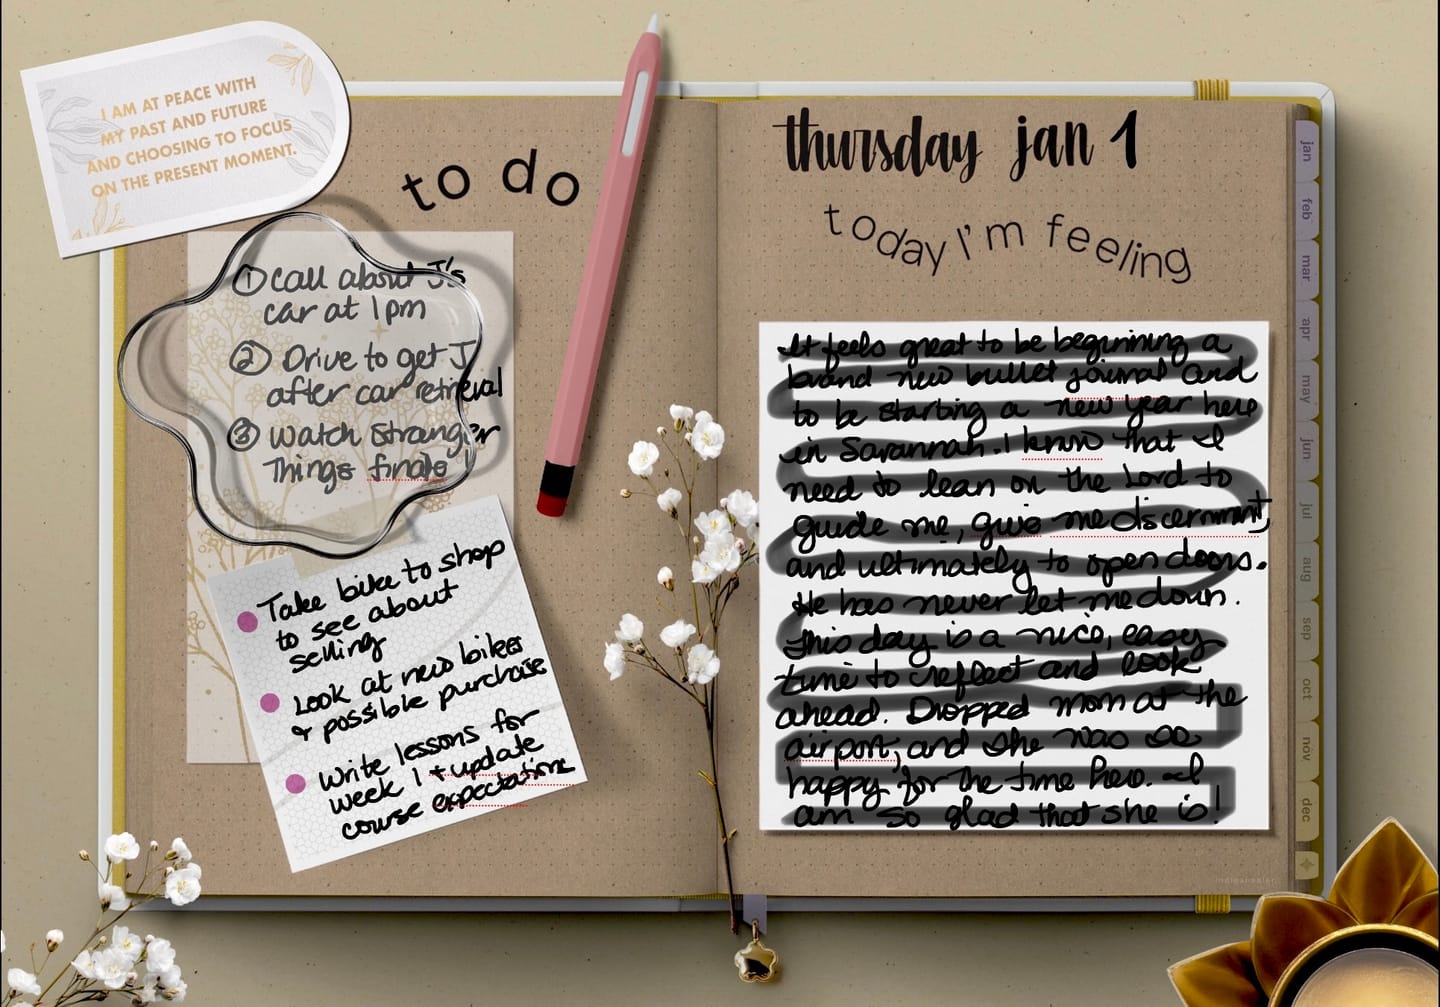 I AM AT PEACE WITH
MY PAST AND FUTURE
AND CHOOSING TO FOCUS
ON THE PRESENT MOMENT.
to do
① Call about J's
car at 1pm
② Drive to get J
after car retrieval
③ Watch Stranger
Things finale!
Take bike to shop
to see about
selling
Look at new bikes
& possible purchase
Write lessons for
week 1 + update
course expectations
thursday jan 1
today I'm feeling
It feels great to be beginning a
brand new bullet journal and
to be starting a new year here
in Savannah. I know that I
need to lean on the Lord to
guide me, give me discernment,
and ultimately to open doors.
He has never let me down.
This day is a nice, easy
time to reflect and look
ahead. Dropped mom at the
airport, and she was so
happy for the time here. I
am so glad that she is!
jan
feb
mar
apr
may
jun
jul
aug
sep
oct
nov
dec